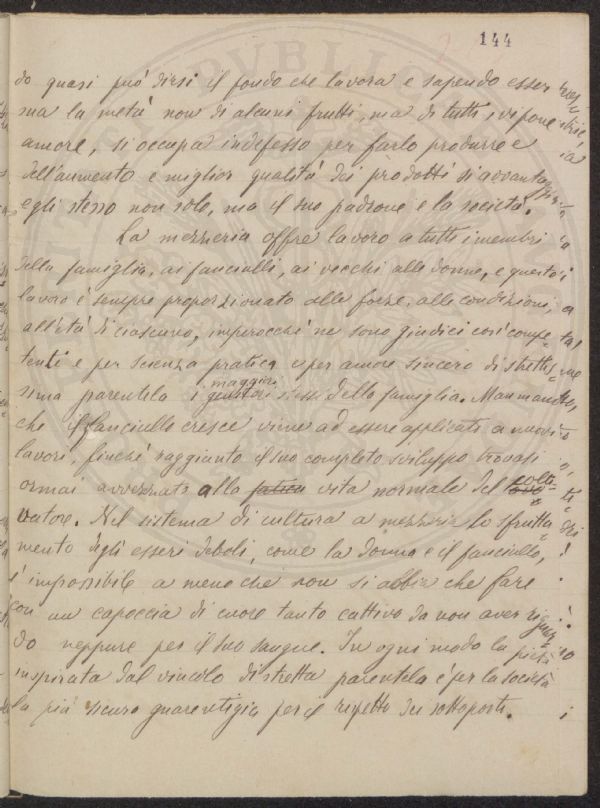 144
do quasi può dirsi il fondo che lavora e sapendo esser
sua la metà non di alcuni frutti, ma di tutti, vi pone
amore, si occupa indefesso per farlo produrre e
dell'aumento e miglior qualità dei prodotti si avvantaggia
egli stesso non solo, ma il suo padrone e la società.
La mezzeria offre lavoro a tutti i membri
della famiglia, ai fanciulli, ai vecchi alle donne, e questo
lavoro è sempre proporzionato alle forze, alle condizioni,
all'età di ciascuno, imperocchè ne sono giudici così compe-
tenti e per scienza pratica e per amore sincero di strettis-
sima parentela i maggiori stessi della famiglia. Man mano
che il fanciullo cresce viene ad essere applicato a nuovi
lavori, finchè raggiunto il suo completo sviluppo trovasi
ormai avvezzato alla fatica vita normale del colti-
vatore. Nel sistema di cultura a mezzeria lo sfrutta-
mento degli esseri deboli, come la donna e il fanciullo,
è impossibile a meno che non si abbia che fare
con un capoccia di cuore tanto cattivo da non aver riguar-
do neppure per il suo sangue. In ogni modo la pietà
inspirata dal vincolo di stretta parentela è per la società
la più sicura guarentigia per il rispetto dei sottoposti.